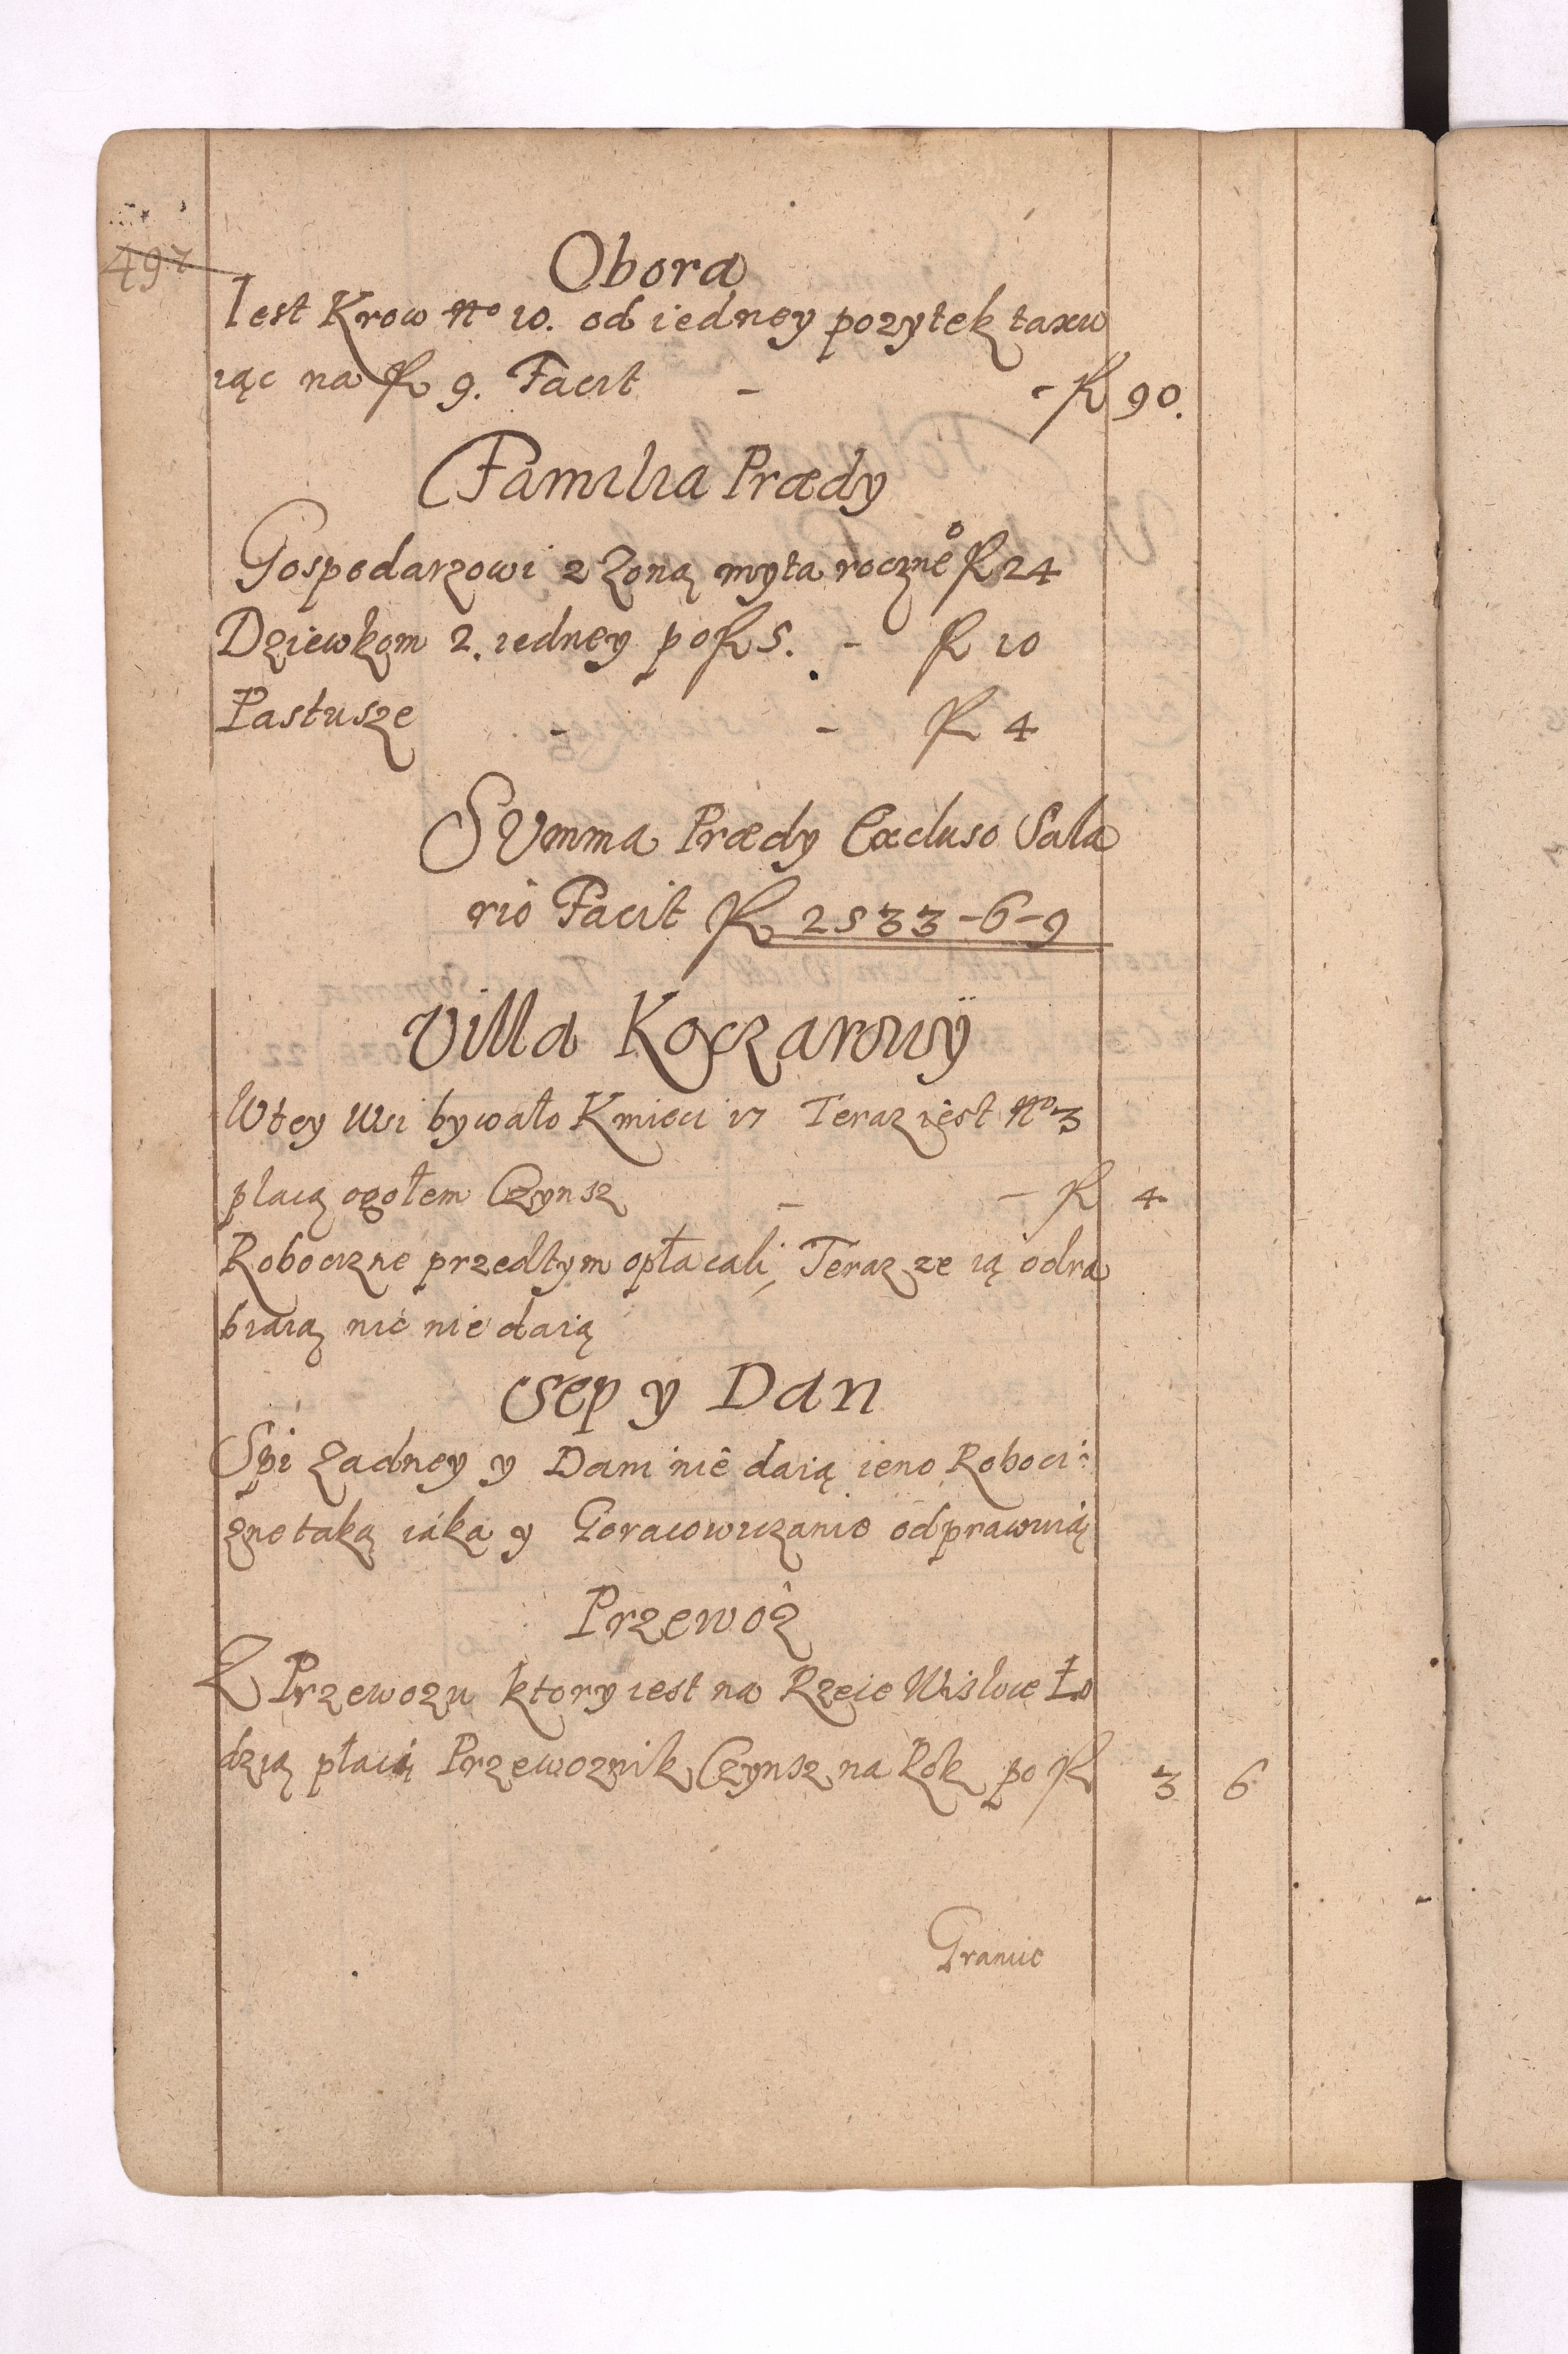 497
Obora
Iest Krow No 10. od iedney pozytek taxu
iąc na R 9. Facit - - R 90.
Familia Prædy
Gospodarzowi z Zoną myta roczneo R 24
Dziewkom 2. iedney po R 5. - R 10
Pastusze - - R 4
SVmma Prædy Excluso Sala
rio Facit R 2533-6-9
Villa Koczarowÿ
Wtey Wsi bywało Kmieci 17 Teraz iest No 3
placą ogołem Czynsz - - R 4
Robociznę przedtym opłacali, Teraz ze ią odra
biaią nic nie daią
Sep y Dan
Spi Zadney y Dani nie daią ieno Roboci:
znę taką iaką y Goraiowiczanie odprawuią
Przewóz
Z Przewozu ktory iest na Rzece Wisloce Ło
dzią płaci Przewoznik Czynsz na Rok po R 3 6
Granic